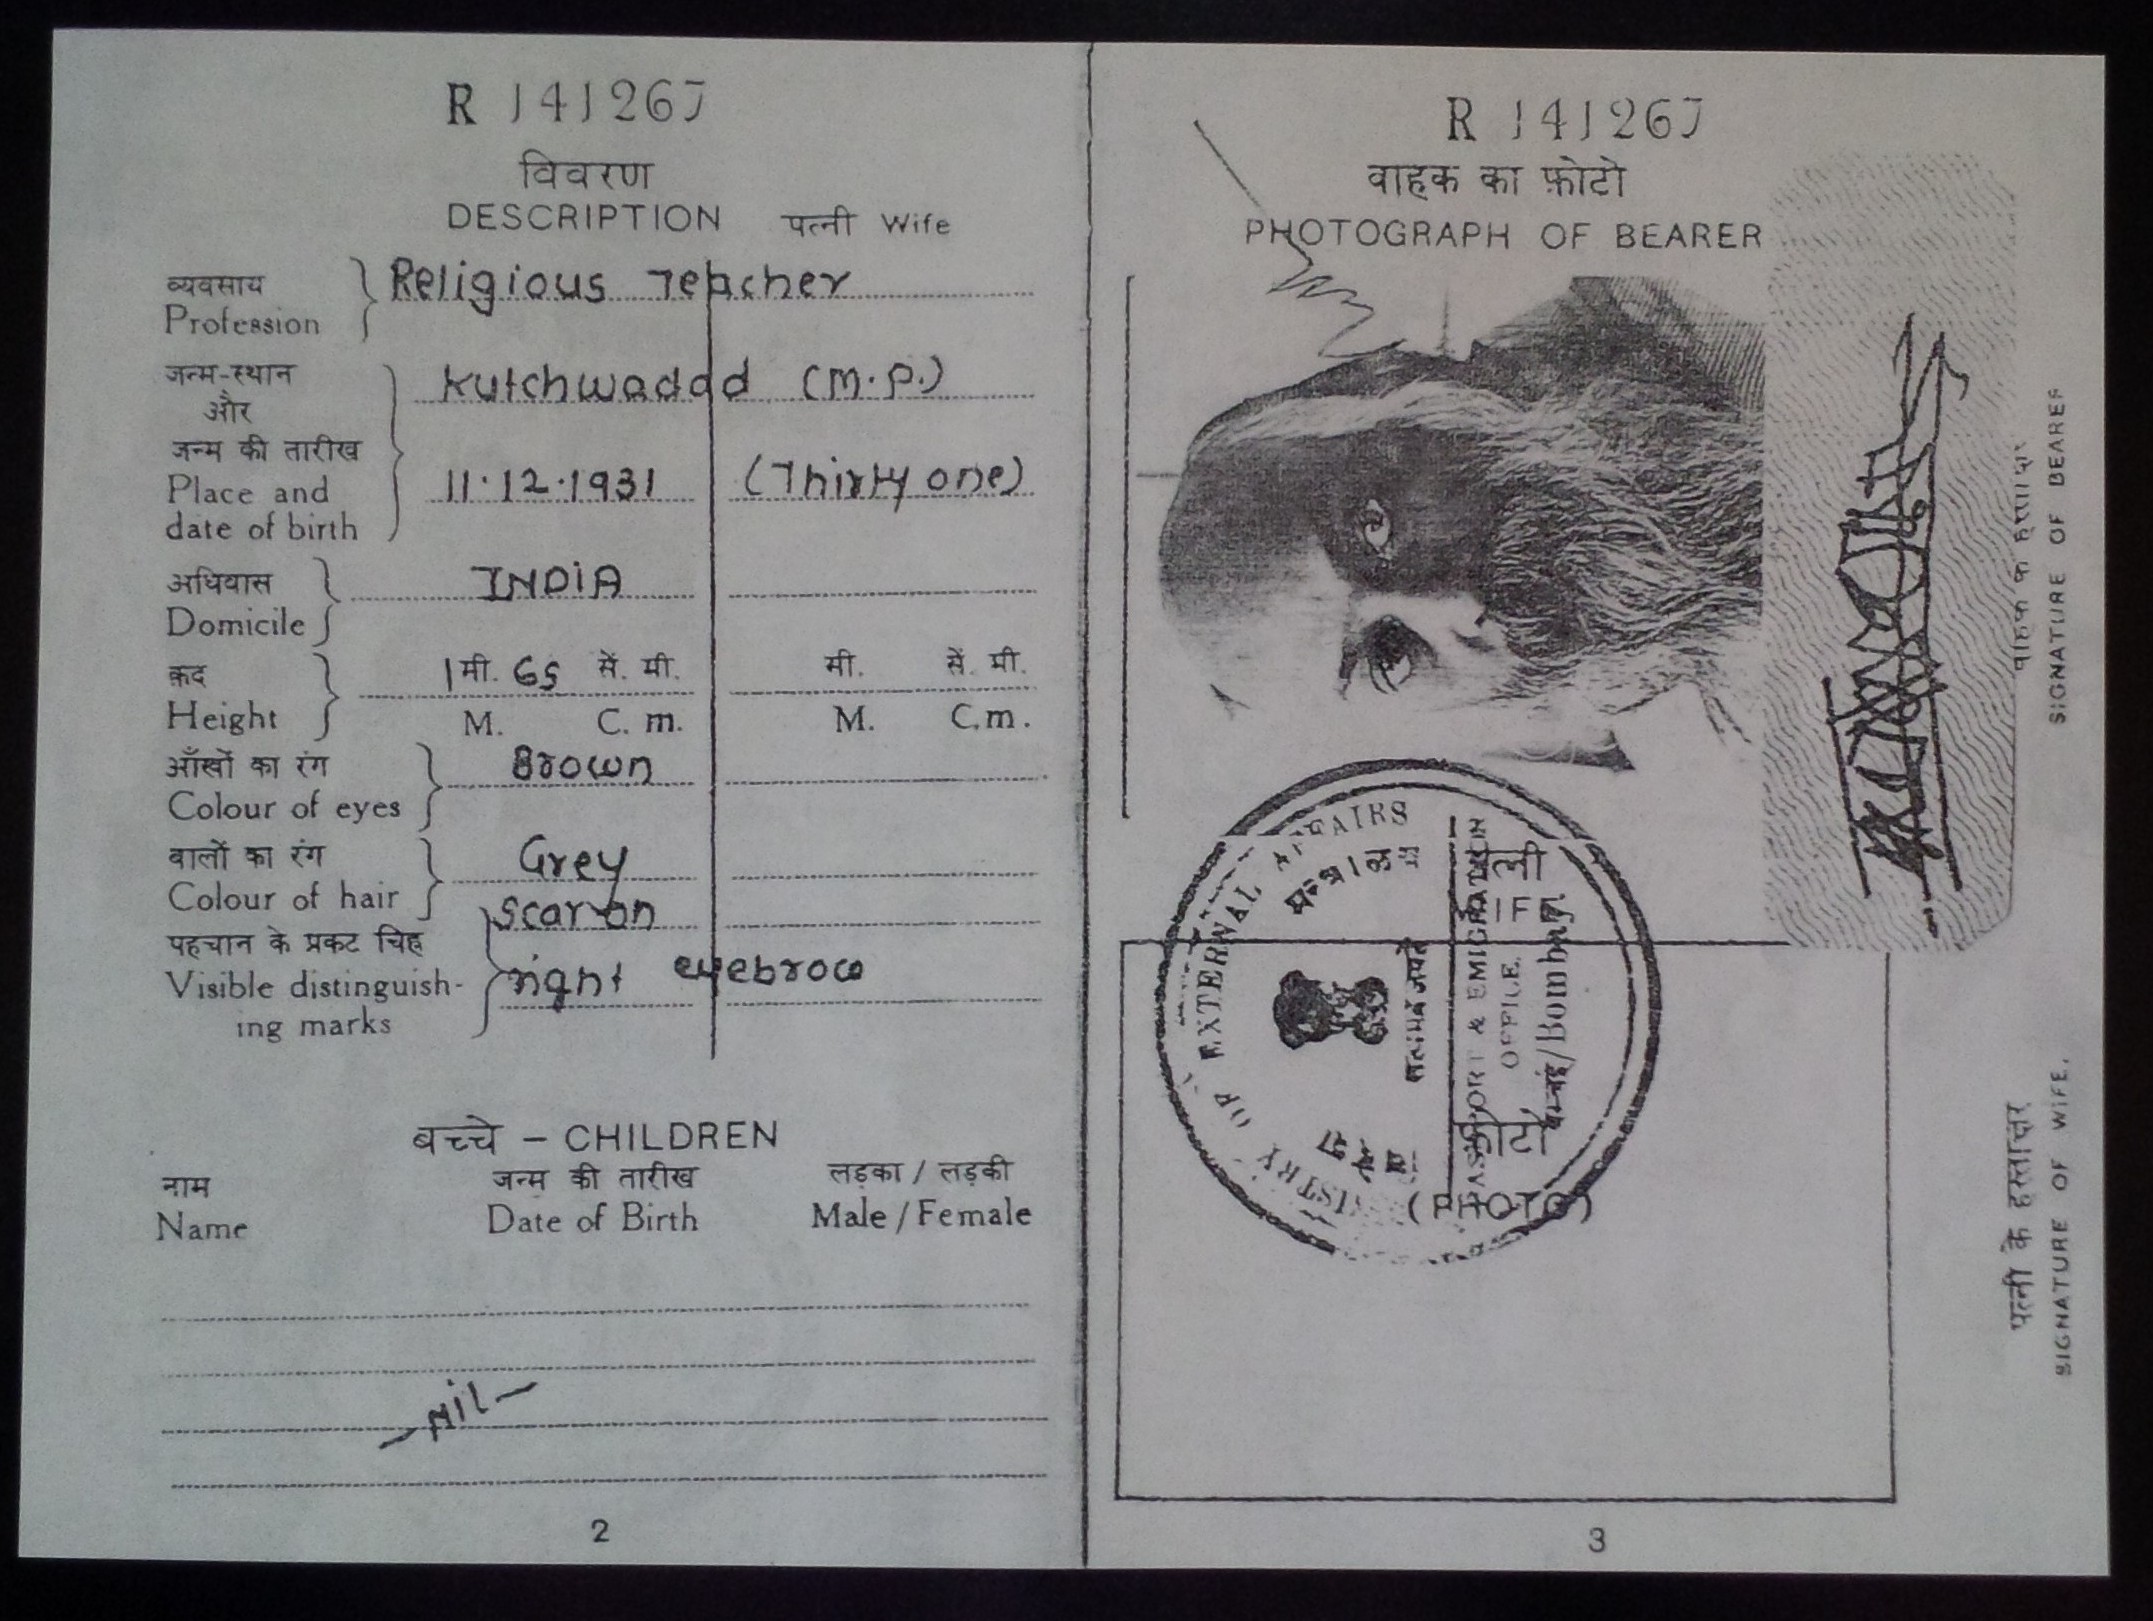 R 141267
विवरण
DESCRIPTION पत्नी Wife
व्यवसाय
Profession
Religious Teacher
जन्म-स्थान
और
जन्म की तारीख
Place and
date of birth
Kutchwadad (M.P.)
11.12.1931 (Thirty one)
अधिवास
Domicile
INDIA
क़द
Height
1 मी. 65 सें. मी. मी. सें. मी.
M. C. m. M. C.m.
आँखों का रंग
Colour of eyes
Brown
बालों का रंग
Colour of hair
Grey
पहचान के प्रकट चिह्न
Visible distinguish-
ing marks
Scar on
right eyebrow
बच्चे – CHILDREN
नाम जन्म की तारीख लड़का / लड़की
Name Date of Birth Male / Female
– Nil –
2
R 141267
वाहक का फ़ोटो
PHOTOGRAPH OF BEARER
वाहक के हस्ताक्षर
SIGNATURE OF BEARER
OF EXTERNAL AFFAIRS
मन्त्रालय
सत्यमेव जयते
PASSPORT & EMIGRATION
OFFICE,
बम्बई/Bombay.
पत्नी
फ़ोटो
(PHOTO)
पत्नी के हस्ताक्षर
SIGNATURE OF WIFE.
3